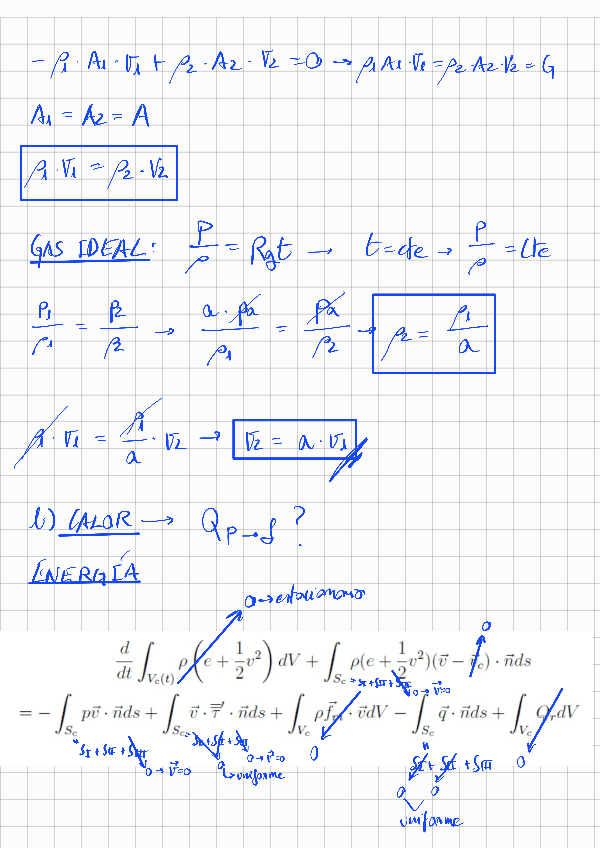 - ρ₁ · A₁ · v₁ + ρ₂ · A₂ · v₂ = 0 → ρ₁ A₁ · v₁ = ρ₂ · A₂ · v₂ = G
A₁ = A₂ = A
ρ₁ · v₁ = ρ₂ · v₂
GAS IDEAL: P/ρ = Rgt → t = cte → P/ρ = Cte
P₁/ρ₁ = P₂/ρ₂ → a · pa/ρ₁ = pa/ρ₂ → ρ₂ = ρ₁/a
ρ₁ · v₁ = ρ₁/a · v₂ → v₂ = a · v₁
b) CALOR → Q p→f ?
ENERGÍA
0 → estacionario
0
d/dt ∫_{V_c(t)} ρ(e + 1/2 v²) dV + ∫_{S_c} ρ(e + 1/2 v²)(v⃗ − v⃗_c) · n⃗ds
= SI + SII + SIII 0 → v⃗=0
= − ∫_{S_c} pv⃗ · n⃗ds + ∫_{S_c} v⃗ · τ̿′ · n⃗ds + ∫_{V_c} ρf⃗_m · v⃗dV − ∫_{S_c} q⃗ · n⃗ds + ∫_{V_c} Q_r dV
SI + SII + SIII = SI + SII + SIII 0 " SI + SII + SIII 0
0 → v⃗=0 0 0 → v⃗=0
↳ uniforme 0 0
uniforme